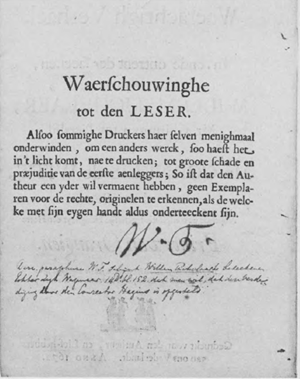 Waerschouwinghe
tot den LESER.
Alsoo sommighe Druckers haer selven menighmaal
onderwinden, om een anders werck, soo haest het
in 't licht komt, nae te drucken; tot groote schade en
præjuditie van de eerste aenleggers; So ist dat den Au-
theur een yder wil vermaent hebben, geen Exempla-
ren voor de rechte, originelen te erkennen, als de welc-
ke met sijn eygen handt aldus onderteeckent sijn.
W. F.
W. F.